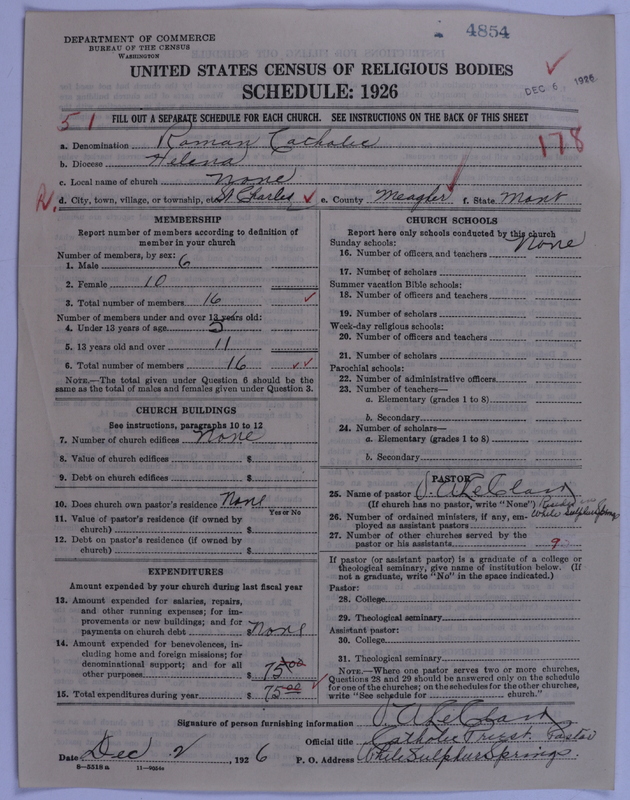 4854
DEPARTMENT OF COMMERCE
BUREAU OF THE CENSUS
WASHINGTON
UNITED STATES CENSUS OF RELIGIOUS BODIES
SCHEDULE: 1926
DEC. 6, 1926
51 FILL OUT A SEPARATE SCHEDULE FOR EACH CHURCH. SEE INSTRUCTIONS ON THE BACK OF THIS SHEET
178
a. Denomination Roman Catholic
b. Diocese Helena
c. Local name of church None
d. City, town, village, or township, etc. St Charles e. County Meagher f. State Mont
MEMBERSHIP
Report number of members according to definition of
member in your church
Number of members, by sex:
1. Male 6
2. Female 10
3. Total number of members 16
Number of members under and over 13 years old:
4. Under 13 years of age 5
5. 13 years old and over 11
6. Total number of members 16
NOTE.—The total given under Question 6 should be the
same as the total of males and females given under Question 3.
CHURCH BUILDINGS
See instructions, paragraphs 10 to 12
7. Number of church edifices None
8. Value of church edifices $
9. Debt on church edifices $
10. Does church own pastor's residence None
Yes or No
11. Value of pastor's residence (if owned by
church) $
12. Debt on pastor's residence (if owned by
church) $
EXPENDITURES
Amount expended by your church during last fiscal year
13. Amount expended for salaries, repairs,
and other running expenses; for im-
provements or new buildings; and for
payments on church debt $ None
14. Amount expended for benevolences, in-
cluding home and foreign missions; for
denominational support; and for all
other purposes $ 75.00
15. Total expenditures during year $ 75.00
CHURCH SCHOOLS
Report here only schools conducted by this church
Sunday schools:
16. Number of officers and teachers None
17. Number of scholars
Summer vacation Bible schools:
18. Number of officers and teachers
19. Number of scholars
Week-day religious schools:
20. Number of officers and teachers
21. Number of scholars
Parochial schools:
22. Number of administrative officers
23. Number of teachers—
a. Elementary (grades 1 to 8)
b. Secondary
24. Number of scholars—
a. Elementary (grades 1 to 8)
b. Secondary
PASTOR
25. Name of pastor
(If church has no pastor, write "None")
26. Number of ordained ministers, if any, em-
ployed as assistant pastors White Sulphur Springs
27. Number of other churches served by the
pastor or his assistants 9
If pastor (or assistant pastor) is a graduate of a college or
theological seminary, give name of institution below. (If
not a graduate, write "No" in the space indicated.)
Pastor:
28. College
29. Theological seminary
Assistant pastor:
30. College
31. Theological seminary
NOTE.—Where one pastor serves two or more churches,
Questions 28 and 29 should be answered only on the schedule
for one of the churches; on the schedules for the other churches,
write "See schedule for church."
Signature of person furnishing information
Official title Catholic Priest Pastor
Date Dec 2, 1926 P. O. Address White Sulphur Springs.
8—5518a 11—9554